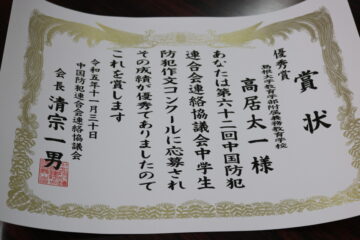 賞状
優秀賞
島根大学教育学部附属義務教育学校
高居太一様
あなたは第六十二回中国防犯
連合会連絡協議会中学生
防犯作文コンクールに応募され
その成績が優秀でありましたので
これを賞します
令和五年十一月三十日
中国防犯連合会連絡協議会
会長 清宗一男